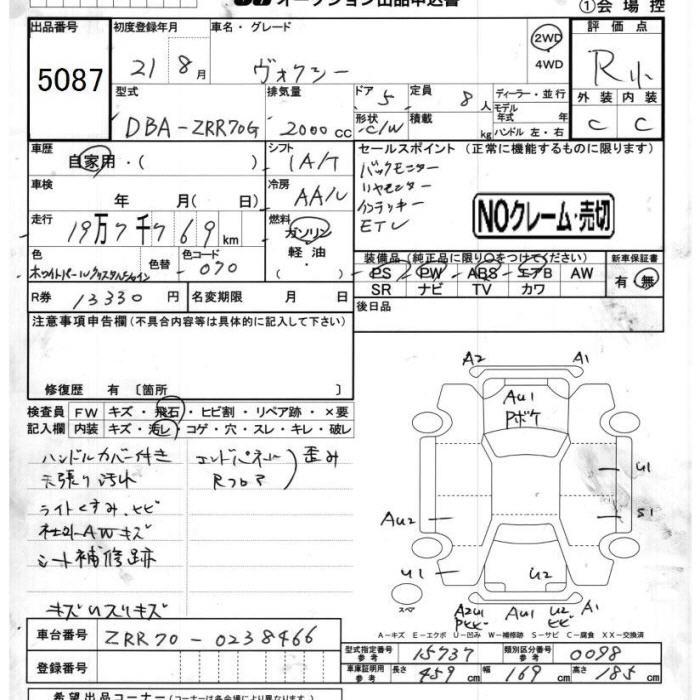 オークション出品申込書
①会場控
出品番号
5087
初度登録年月
21 8月
車名・グレード
ヴォクシー
2WD
・
4WD
評価点
R小
外装 内装
C C
型式
DBA-ZRR70G
排気量
2000cc
ドア 5
定員 8人
形状 C/W
積載 kg
ディーラー・並行
モデル年式 年
ハンドル 左・右
車歴
自家用・( )
シフト
IA/T
車検
年 月( 日)
冷房
AA/C
走行
19万7千769km
燃料
ガソリン
・
軽油
( )
色
ホワイトパールクリスタルシャイン
色替
色コード
070
セールスポイント (正常に機能するものに限ります)
バックモニター
リヤモニター
ETC
NOクレーム・売切
装備品(純正品に限り○をつけてください)
PS PW ABS エアB AW
SR ナビ TV カワ
新車保証書
有・無
R券 13330円
名変期限 月 日
後日品
注意事項申告欄(不具合内容等は具体的に記入して下さい)
修復歴 有〔箇所 〕
検査員 FW キズ・飛石・ヒビ割・リペア跡・×要
記入欄 内装 キズ・汚レ・コゲ・穴・スレ・キレ・破レ
ハンドルカバー付き
天張り汚れ
ライトくすみ、ヒビ
社外AWキズ
シート補修跡
キズUズリキズ
エンドパネル
Rフロア
歪み
A2 A1
AU1
Pボケ
U1
S1
AU2
U1
U2
スペア
AU1
A1
A-キズ E-エクボ U-凹み W-補修跡 S-サビ C-腐食 XX-交換済
車台番号 ZRR70-0238466
登録番号
型式指定番号 参考 15737
類別区分番号 参考 0098
車庫証明用 参考 長さ 459cm 幅 169cm 高さ 185cm
希望出品コーナー(コーナーは各会場により異なります。)